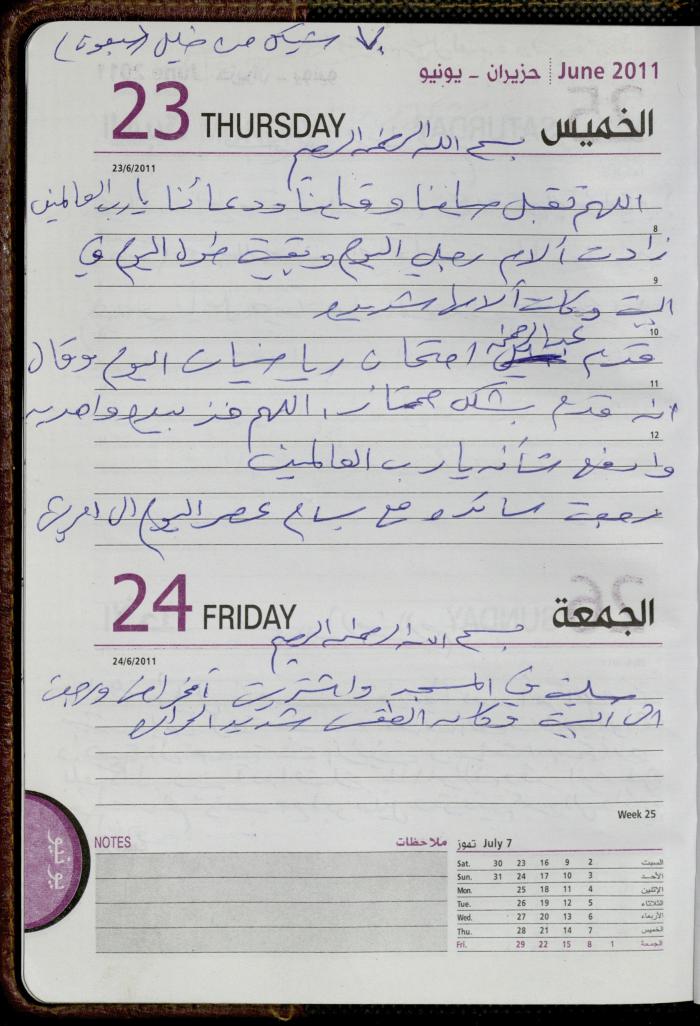 شيكل من خليل
June 2011 حزيران - يونيو
23 THURSDAY الخميس
بسم الله الرحمن الرحيم
23/6/2011
اللهم تقبل صيامنا وقيامنا ودعائنا يا رب العالمين
8
زادت آلام رجلي اليوم وبقيت طول اليوم في
9
البيت وكانت آلامها شديده
10
قدم عبد الرحمن امتحان رياضيات اليوم وقال
11
انه قدم بشكل ممتاز، اللهم خذ بيده واهديه
12
وارفع شأنه يا رب العالمين
رجعت سائده مع بسام عصر اليوم الى
24 FRIDAY الجمعة
بسم الله الرحمن الرحيم
24/6/2011
صليت في المسجد واشتريت ورجعت
الى البيت وكان الطقس شديد الحراره
Week 25
NOTES ملاحظات
يونيو
تموز July 7
Sat. 30 23 16 9 2 السبت
Sun. 31 24 17 10 3 الأحد
Mon. 25 18 11 4 الإثنين
Tue. 26 19 12 5 الثلاثاء
Wed. 27 20 13 6 الأربعاء
Thu. 28 21 14 7 الخميس
Fri. 29 22 15 8 1 الجمعة